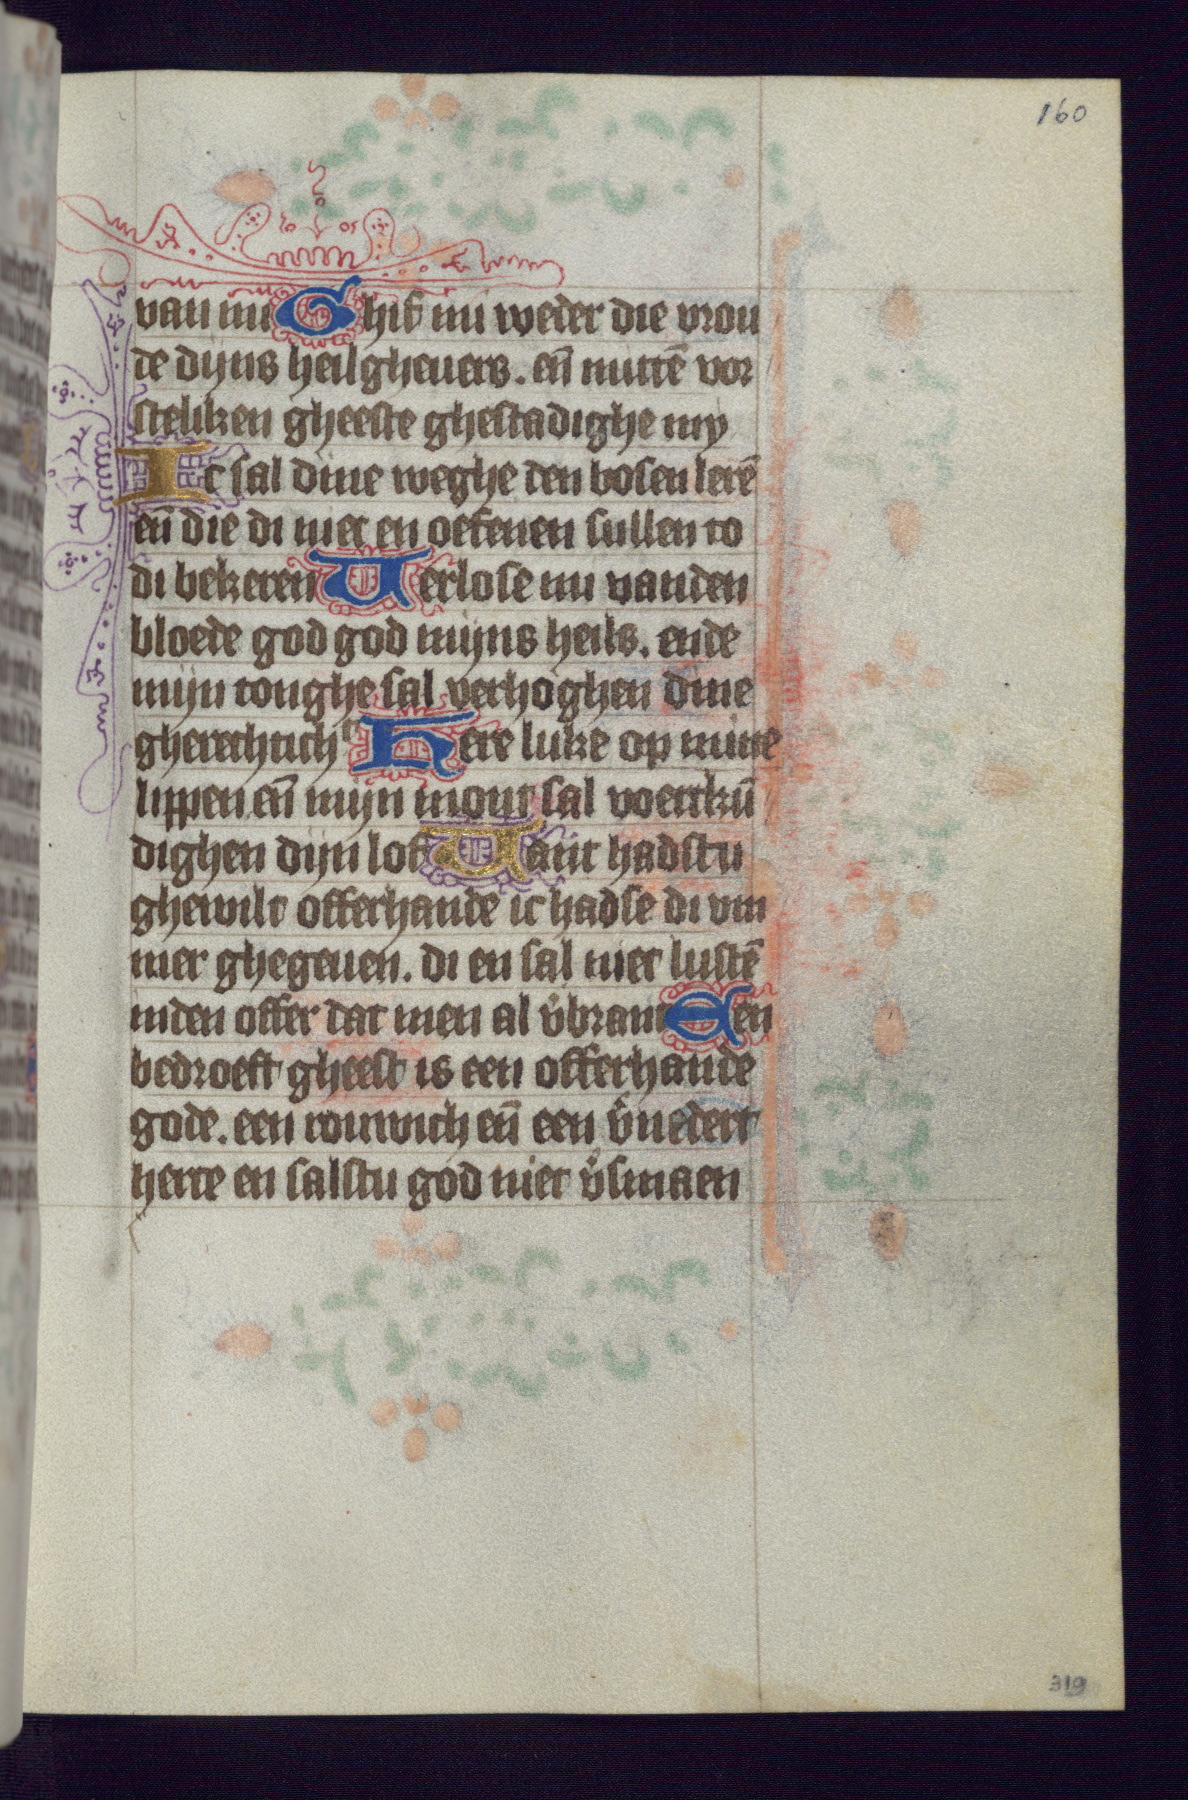 160
van mi Ghif mi weder die vrou
de dijns heilgheuers. en̄ mittē vor
steliken gheeste ghestadighe my
Ic sal dine weghe den bosen lerē
en̄ die di niet en oefenen sullen to
di bekeren Verlose mi vanden
bloede god god mijns heils. ende
mijn tonghe sal verhoghen dine
gherechtich Here luke op mine
lippen en̄ mijn mont sal voertkū
dighen dijn lof Want hadstu
ghewilt offerhande ic hadse di vm
mer ghegeuen. di en sal niet lustē
inden offer dat men al v̓brant Een
bedroeft gheest is een offerhande
gode. een rouwich en̄ een v̓nedert
herte en salstu god niet v̓smaen
319